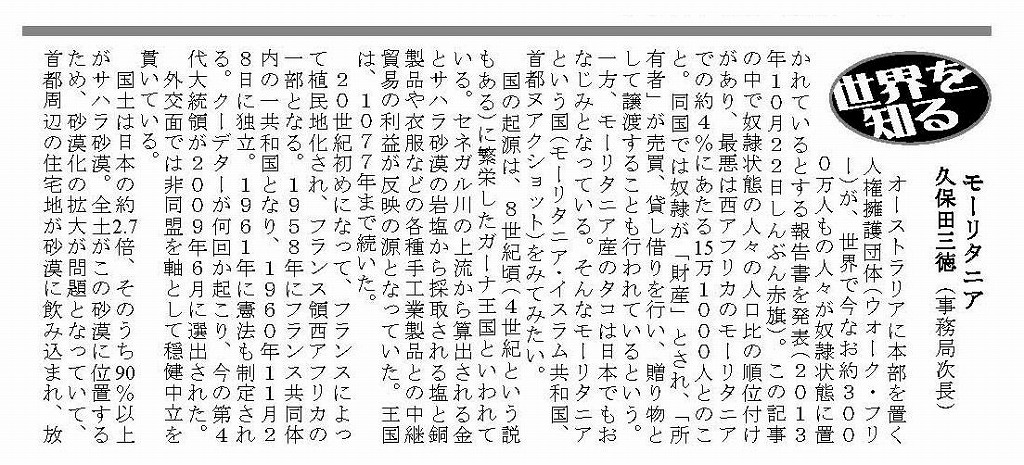 世界を
知る
モーリタニア
久保田三徳（事務局次長）
オーストラリアに本部を置く
人権擁護団体（ウォーク・フリ
ー）が、世界で今なお約３００
０万人もの人々が奴隷状態に置
かれているとする報告書を発表（２０１３
年１０月２２日しんぶん赤旗）。この記事
の中で奴隷状態の人々の人口比の順位付け
があり、最悪は西アフリカのモーリタニア
での約４％にあたる15万１０００人とのこ
と。同国では奴隷が「財産」とされ、「所
有者」が売買、貸し借りを行い、贈り物と
して譲渡することも行われているという。
一方、モーリタニア産のタコは日本でもお
なじみとなっている。そんなモーリタニア
という国（モーリタニア・イスラム共和国、
首都ヌアクショット）をみてみたい。
国の起源は、８世紀頃（４世紀という説
もある）に繁栄したガーナ王国といわれて
いる。セネガル川の上流から算出される金
とサハラ砂漠の岩塩から採取される塩と銅
製品や衣服などの各種手工業製品との中継
貿易の利益が反映の源となっていた。王国
は、１０７７年まで続いた。
２０世紀初めになって、フランスによっ
て植民地化され、フランス領西アフリカの
一部となる。１９５８年にフランス共同体
内の一共和国となり、１９６０年１１月２
８日に独立。１９６１年に憲法も制定され
る。クーデターが何回か起こり、今の第４
代大統領が２００９年６月に選出された。
外交面では非同盟を軸として穏健中立を
貫いている。
国土は日本の約2.7倍、そのうち90％以上
がサハラ砂漠。全土がこの砂漠に位置する
ため、砂漠化の拡大が問題となっていて、
首都周辺の住宅地が砂漠に飲み込まれ、放